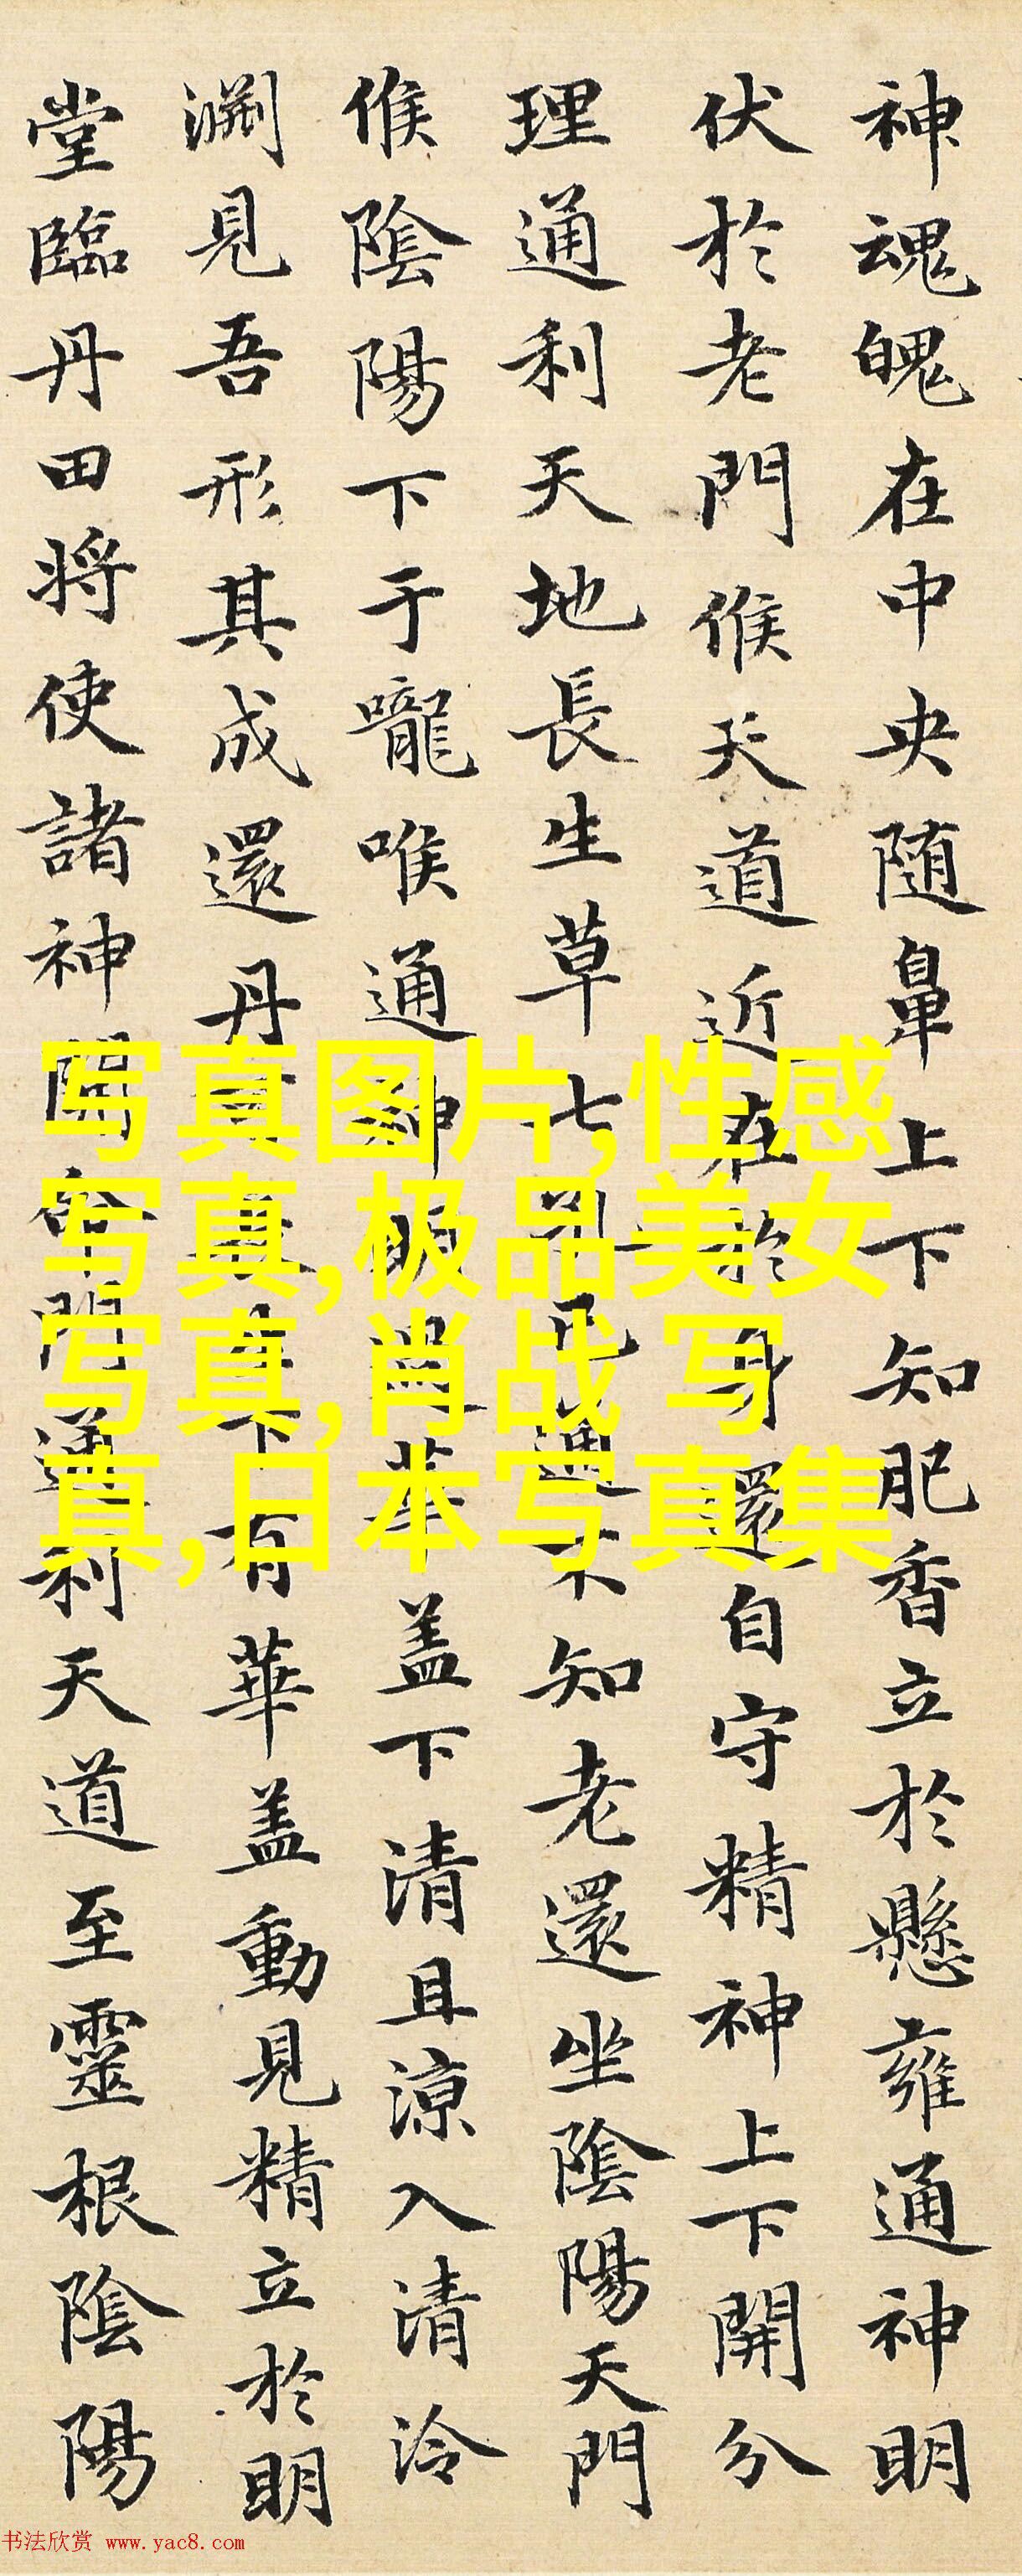 神魂魄在中央随鼻上下知肥香立於懸雍通神明
伏於老門候天道近在於身還自守精神上下開分
理通利天地長生草七孔已通不知老還坐陰陽天門
候陰陽下于嚨喉通神明過華盖下清且涼入清泠
渊見吾形其成還丹有華盖動見精立於明
堂臨丹田将使諸神開命門通利天道至靈根陰陽
写真图片,性感
写真,极品美女
写真,肖战 写
真,日本写真集
书法欣赏 www.yac8.com